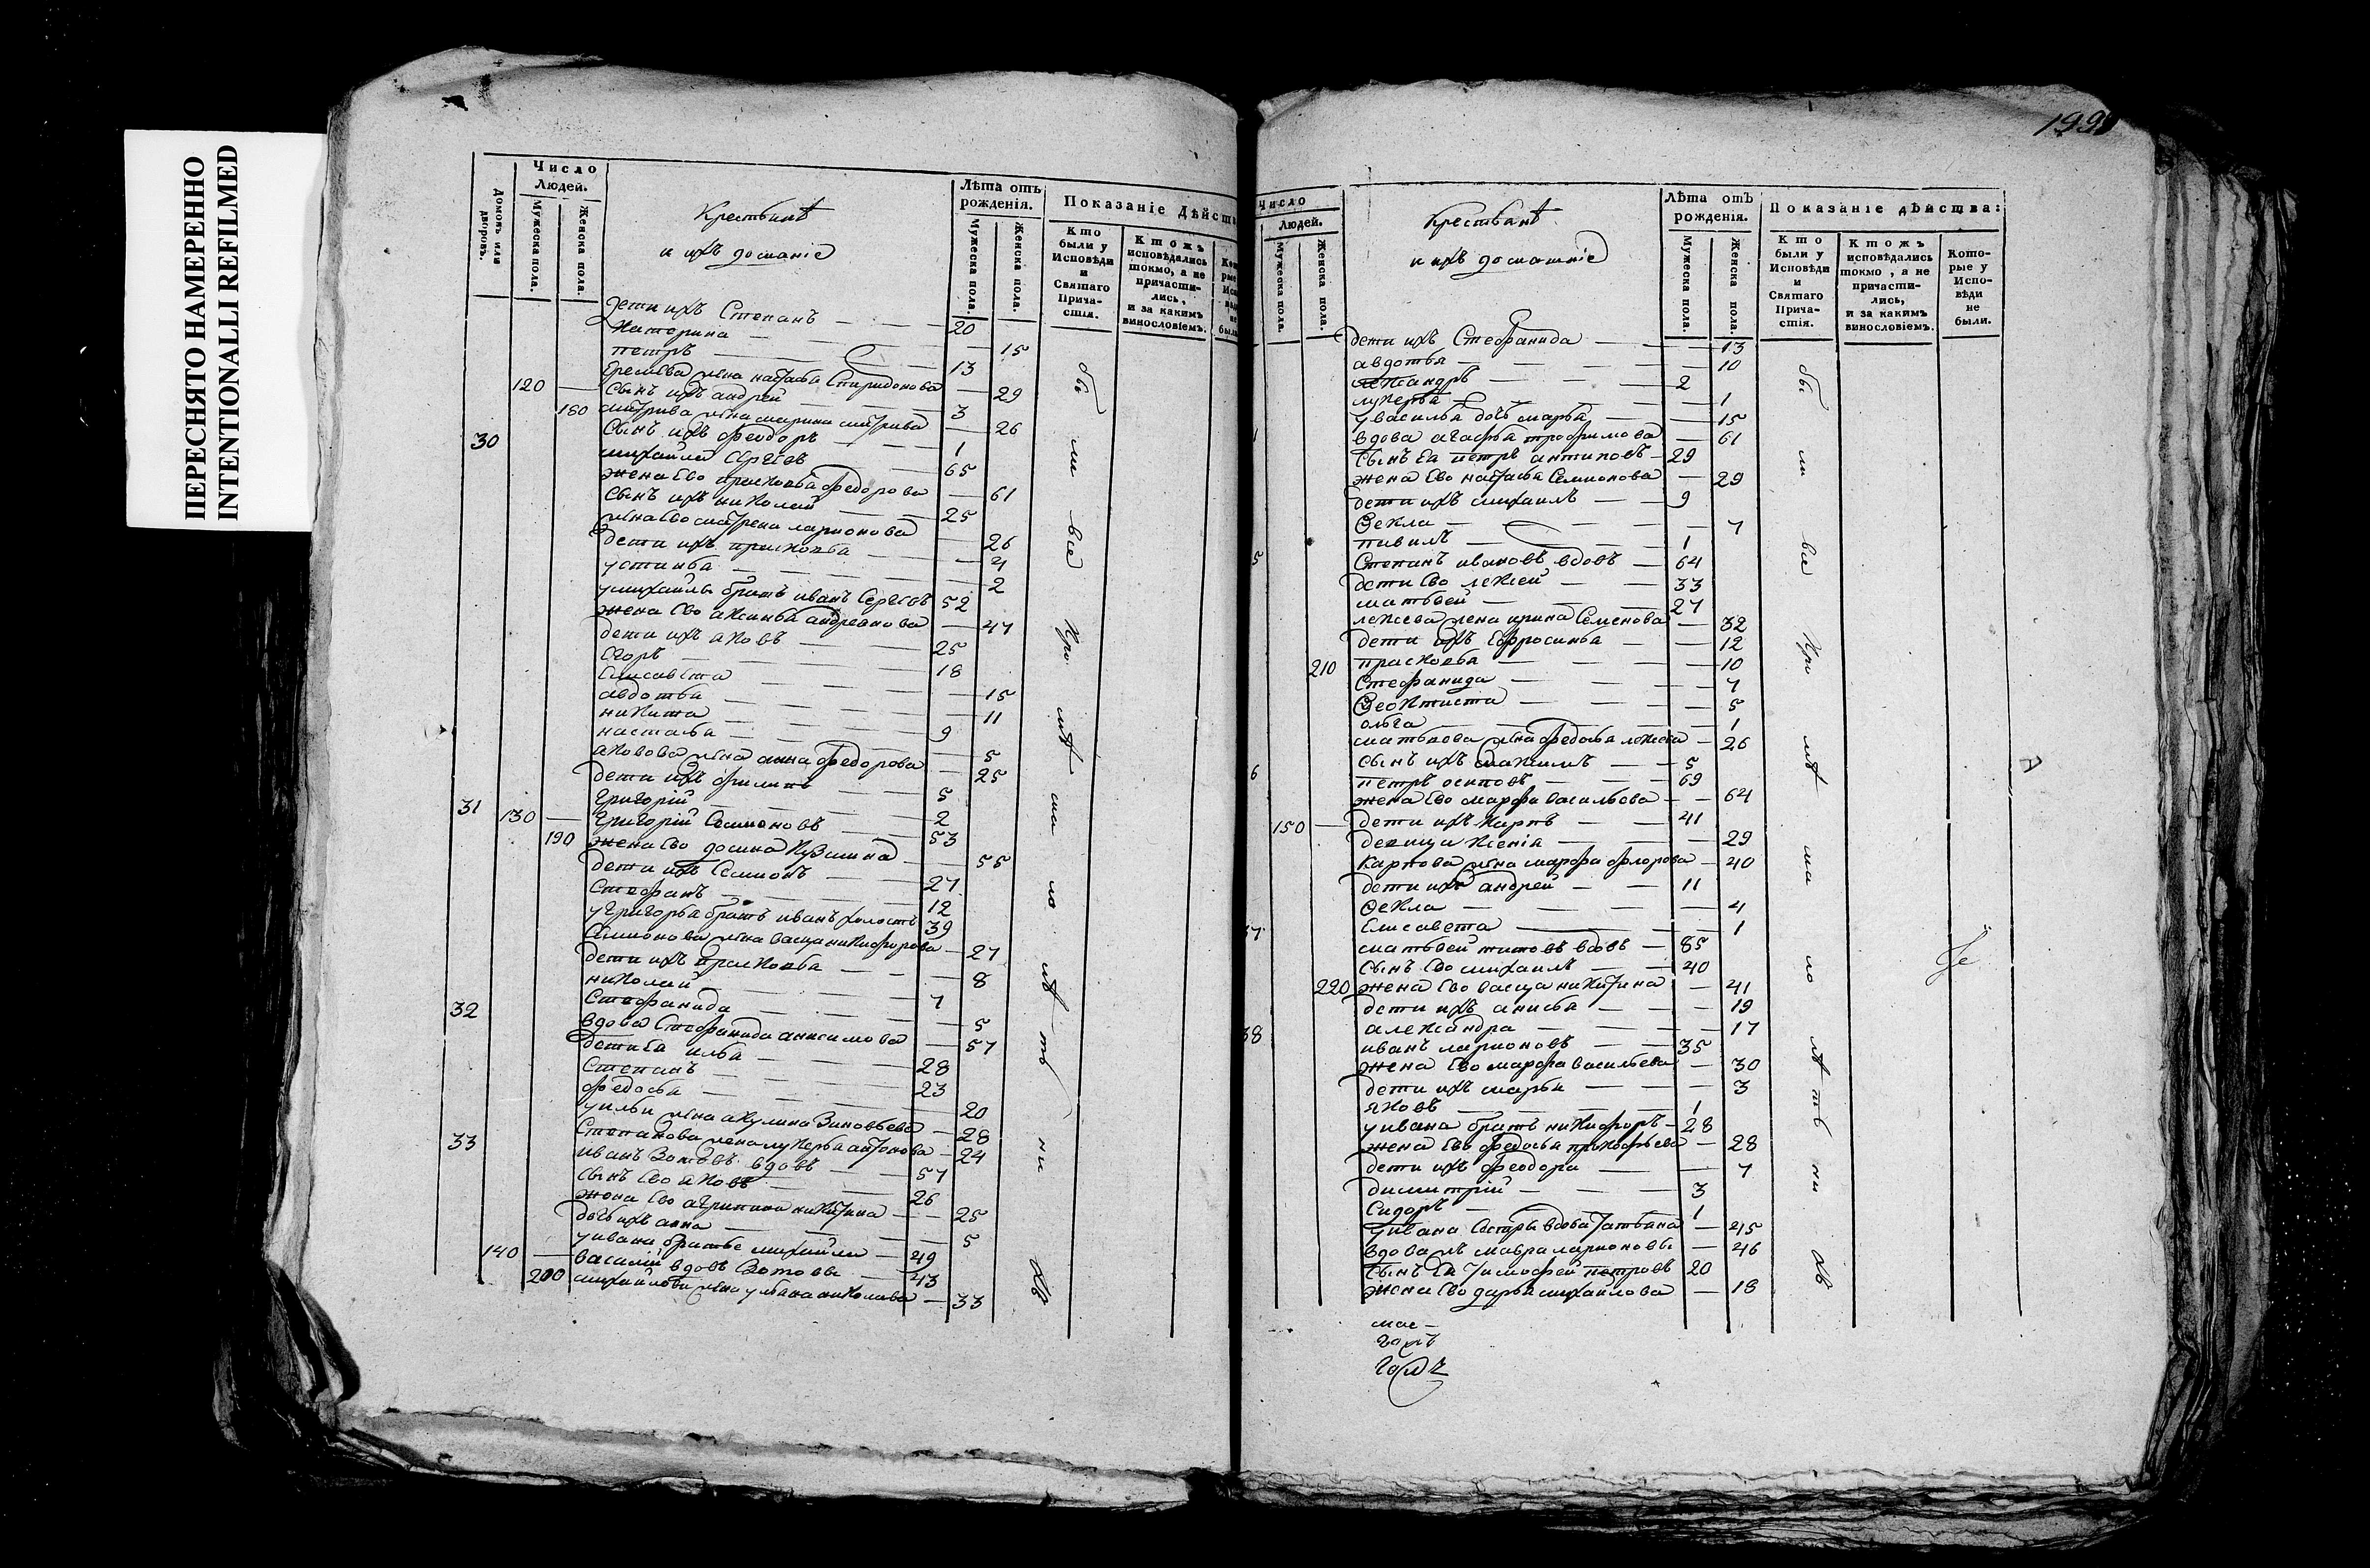 ПЕРЕСНЯТО НАМЕРЕННО
INTENTIONALLI REFILMED
Домовъ или дворовъ.
Число Людей.
Мужеска пола.
Женска пола.
Крестьянѣ
и ихъ домашніе
Лѣта отъ рожденія.
Мужеска пола.
Женска пола.
Показаніе Дѣйств
Кто были у Исповѣди и Святаго Прича-стія.
Ктожъ исповѣдались токмо, а не причасти-лись, и за какимъ винословіемъ.
дети ихъ Степанъ — 20
Катерина — 15
петръ — 13
Еремѣева жена настасья Спиридонова — 29
120 — Сынъ ихъ андрей — 3
180 митрива жена марина митрива — 26
Сынъ ихъ феодоръ — 1
30 михайла Сергѣевъ 65
жена Ево прасковья федорова — 61
Сынъ ихъ николай — 25
жена Ево матрена ларионова 26
дети ихъ прасковья — 4
устинья — 2
у михайлы братъ иванъ Сергѣевъ 52
жена Ево аксинья андреанова — 47
дети ихъ яковъ — 25
Егоръ — 18
Елисавета — 15
авдотья — 11
никита — 9
настасья — 5
яковова жена анна федорова — 25
дети ихъ филипъ — 5
Григорій — 2
31 130 — Григорій Семионовъ — 53
190 жена Ево домна Кузмина — 55
дети ихъ Семионъ — 27
Стефанъ — 12
у Григорья братъ иванъ холостъ 39
Семионова жена васса никифорова — 27
дети ихъ прасковья — 8
николай — 7
Стефанида — 5
32 вдова Стефанида анисимова — 57
дети Ея илья — 28
Степанъ — 23
федосья — 20
у ильи жена акулина Зиновьева — 28
Степанова жена лукерья антонова — 24
33 иванъ Зотовъ вдовъ — 57
сынъ Ево яковъ — 26
жена Ево агрипина никитина — 25
дочь ихъ анна — 5
у ивана братье михайла — 49
140 — василій вдовъ Зотовы — 43
200 михайлова жена ульяна николаева — 33
бы ли все Кро мѣ ма ло лѣ тъ ни хъ
199
Число Людей.
Мужеска пола.
Женска пола.
Крестьянѣ
и ихъ домашніе
Лѣта отъ рожденія.
Мужеска пола.
Женска пола.
Показаніе дѣйства:
Кто были у Исповѣди и Святаго Прича-стія.
Ктожъ исповѣдались токмо, а не причасти-лись, и за какимъ винословіемъ.
Кото-рые у Испо-вѣди не были.
дети ихъ Стефанида — 13
авдотья — 10
лександръ — 2
лукерья — 1
у василья дочь марья — 15
вдова агафья трофимова — 61
Сынъ Ея петръ антиповъ — 29
жена Ево настасья Семионова — 29
дети ихъ михаилъ — 9
Ѳекла — 7
пивилъ — 1
5 Степанъ ивановъ вдовъ — 64
дети Ево лексей — 33
матвей — 27
лексева жена ирина Семенова — 32
дети ихъ Ефросинья — 12
210 прасковья — 10
Стефанида — 7
Ѳеоктиста — 5
ольга — 1
матвеова жена федосья лексева — 26
сынъ ихъ максимъ — 5
6 петръ осиповъ — 69
жена Ево марфа васильева — 64
150 — дети ихъ карпъ — 41
девица ксенія — 29
Карпова жена марфа флорова — 40
дети ихъ андрей — 11
Ѳекла — 4
Елисавета — 1
37 матвей титовъ вдовъ — 85
Сынъ Ево михаилъ — 40
220 жена Ево васса никитина — 41
дети ихъ анисья — 19
александра — 17
38 иванъ ларионовъ — 35
жена Ево марфа васильева — 30
дети ихъ марья — 3
яковъ — 1
у ивана братъ никифоръ — 28
жена Ево федосья прокофьева — 28
дети ихъ феодора — 7
димитрій — 3
Сидоръ — 1
у ивана Сестры вдова татьяна — 45
вдова жъ мавра ларионовы — 46
Сынъ Ея тимофей петровъ 20
жена Ево дарья михайлова — 18
бы ли все Кро мѣ ма ло лѣ тъ ни хъ